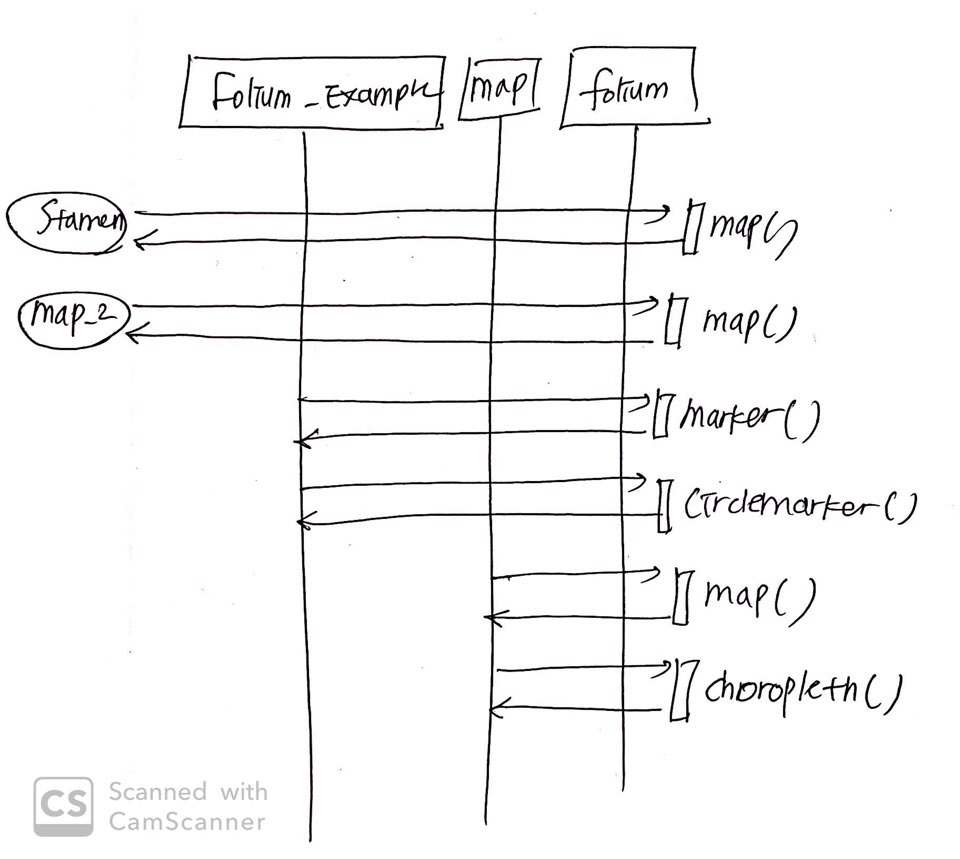 Folium_Example map folium
Stamen map()
map_2 map()
marker()
Circlemarker()
map()
choropleth()
CS Scanned with
CamScanner